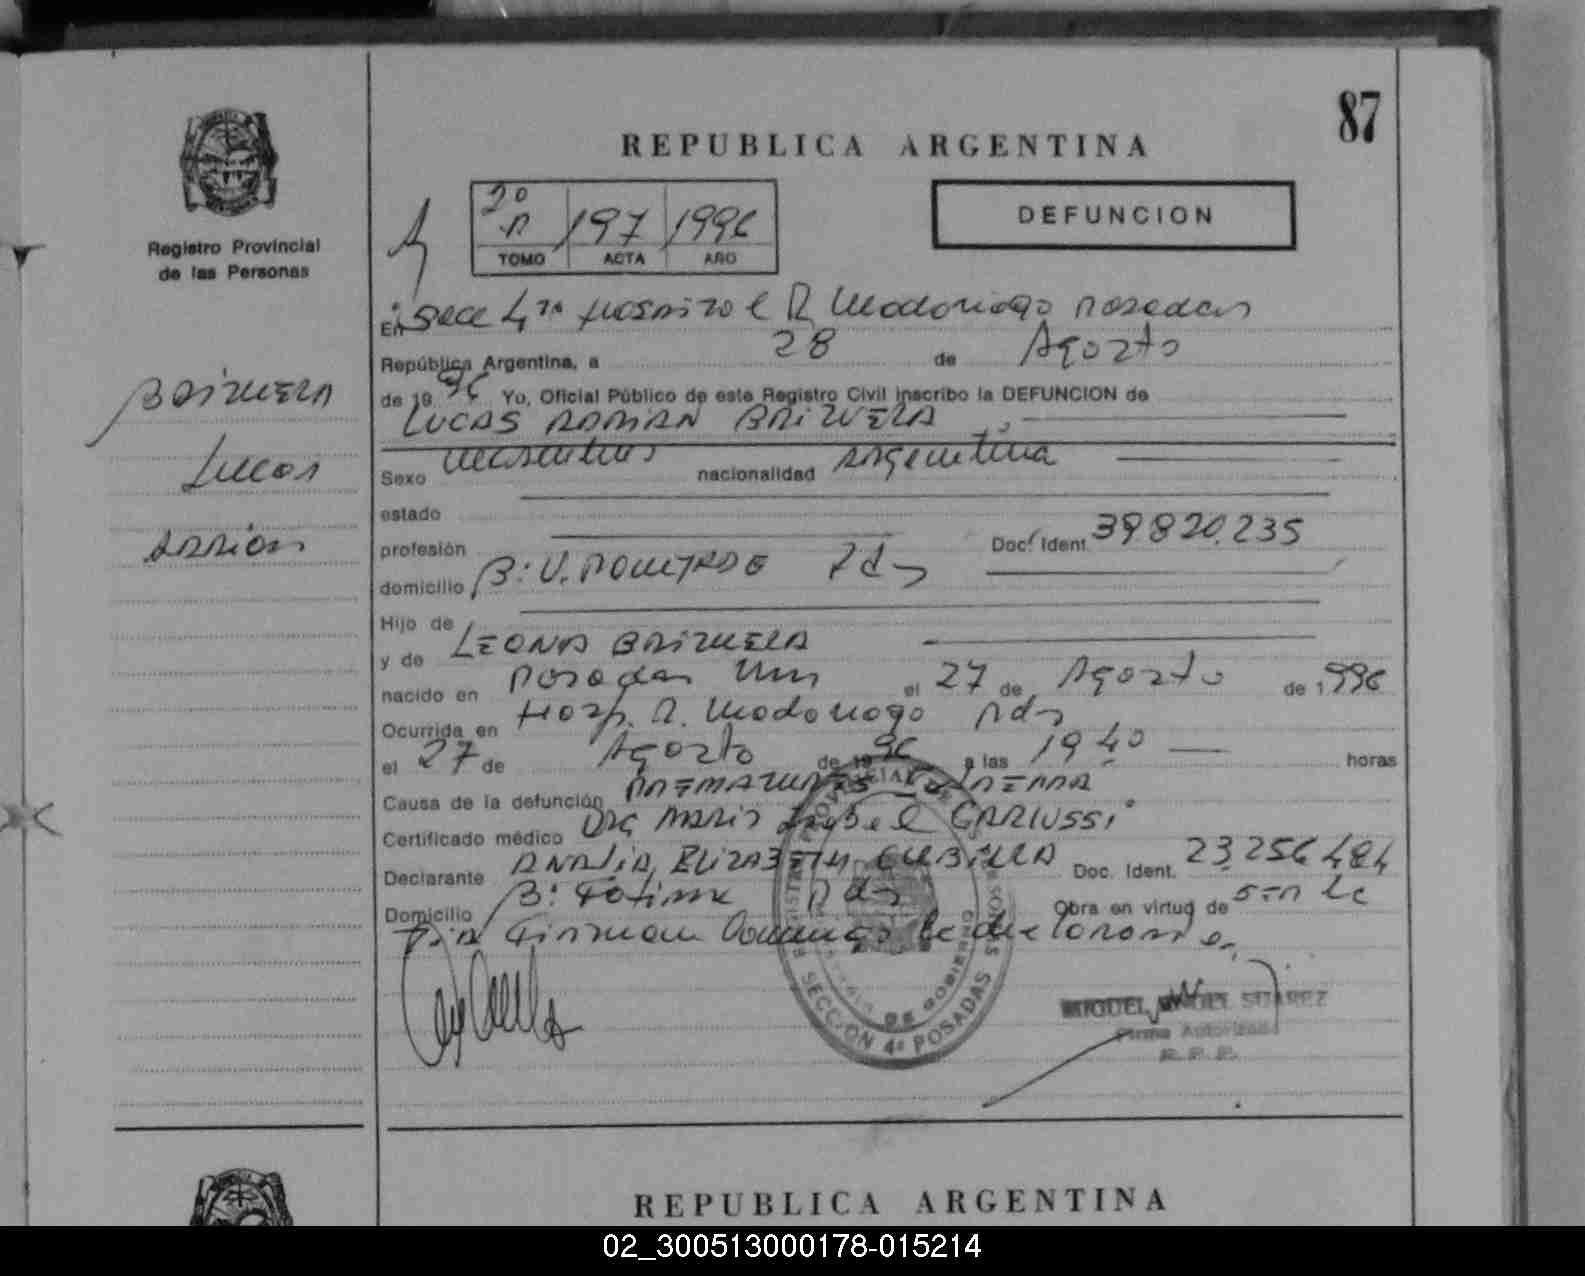 87
REPUBLICA ARGENTINA
2º
197 1996
TOMO ACTA AÑO
DEFUNCION
Registro Provincial
de las Personas
En Secc 4ta Hospital R Madariaga Posadas
República Argentina, a 28 de Agosto
de 1996 Yo, Oficial Público de este Registro Civil inscribo la DEFUNCION de
LUCAS ADRIAN BRIZUELA
BRIZUELA
Lucas
Adrián
Sexo masculino nacionalidad Argentina
estado
profesión Doc. Ident. 39820.235
domicilio B: V. POUJADE Pdas
Hijo de
y de LEONA BRIZUELA
nacido en Posadas Mnes el 27 de Agosto de 1996
Ocurrida en Hosp. R. Madariaga Pdas
el 27 de Agosto de 1996 a las 19 40 horas
Causa de la defunción PREMATUREZ EXTREMA
Certificado médico Dra MARIA Isabel
Declarante ANALIA ELIZABETH CUBILLA Doc. Ident. 23.256.484
Domicilio B: Fátima Pdas Obra en virtud de ser la
Tía Firman Conmigo la declarante.
REGISTRO PROVINCIAL DE LAS PERSONAS
MINISTERIO DE GOBIERNO
SECCION 4ª POSADAS
MIGUEL ANGEL SUAREZ
Firma Autorizada
R. P. P.
REPUBLICA ARGENTINA
02_300513000178-015214